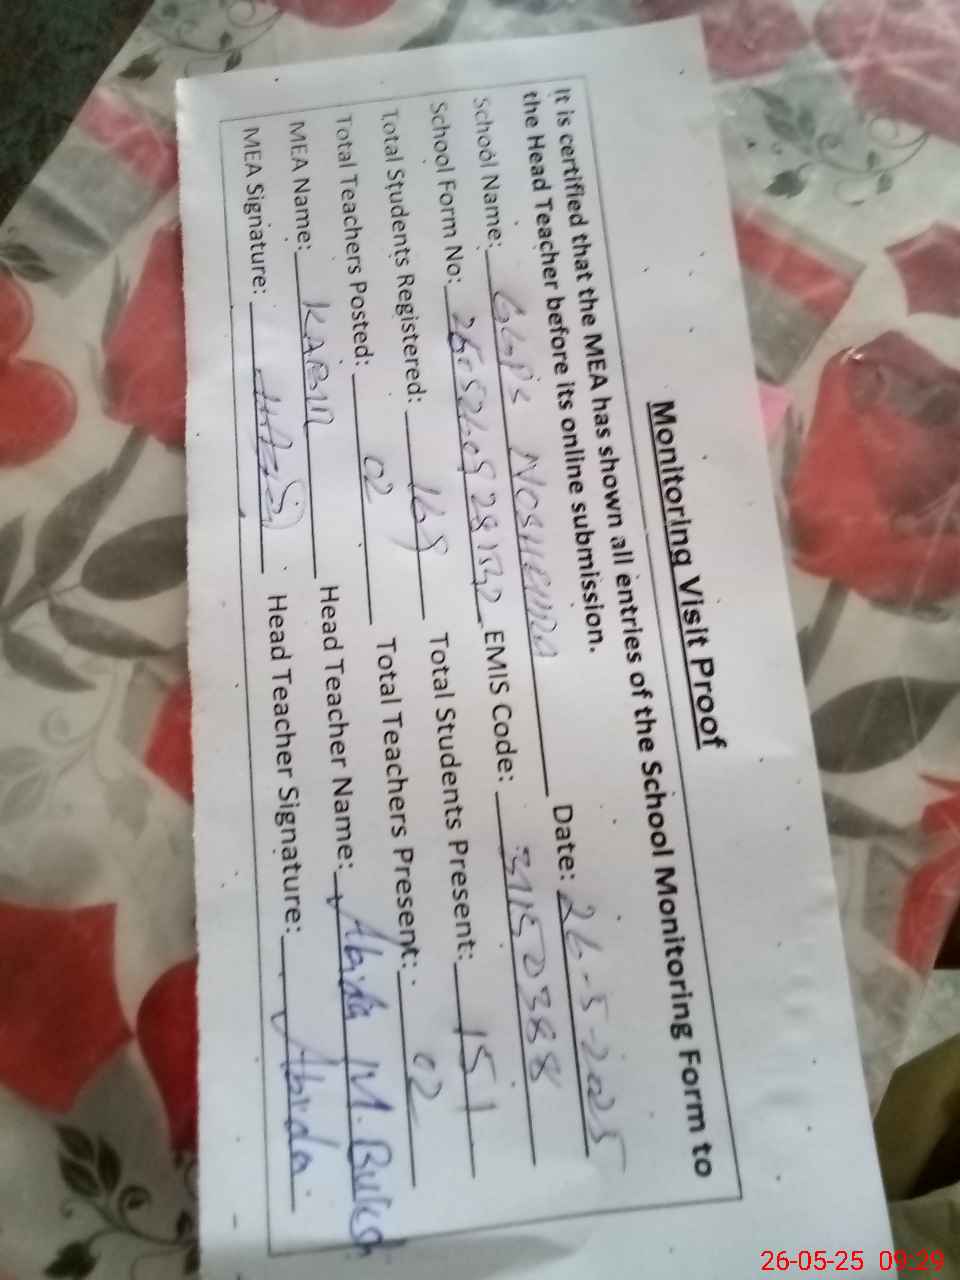 Monitoring Visit Proof
It is certified that the MEA has shown all entries of the School Monitoring Form to
the Head Teacher before its online submission.
School Name: GGPS Date: 26-5-2025
School Form No: EMIS Code: 31520388
Total Students Registered: 169 Total Students Present: 151
Total Teachers Posted: 02 Total Teachers Present: 02
MEA Name: KARIM Head Teacher Name: Abida M. Buksh
MEA Signature: Head Teacher Signature: Abida
26-05-25 09:29